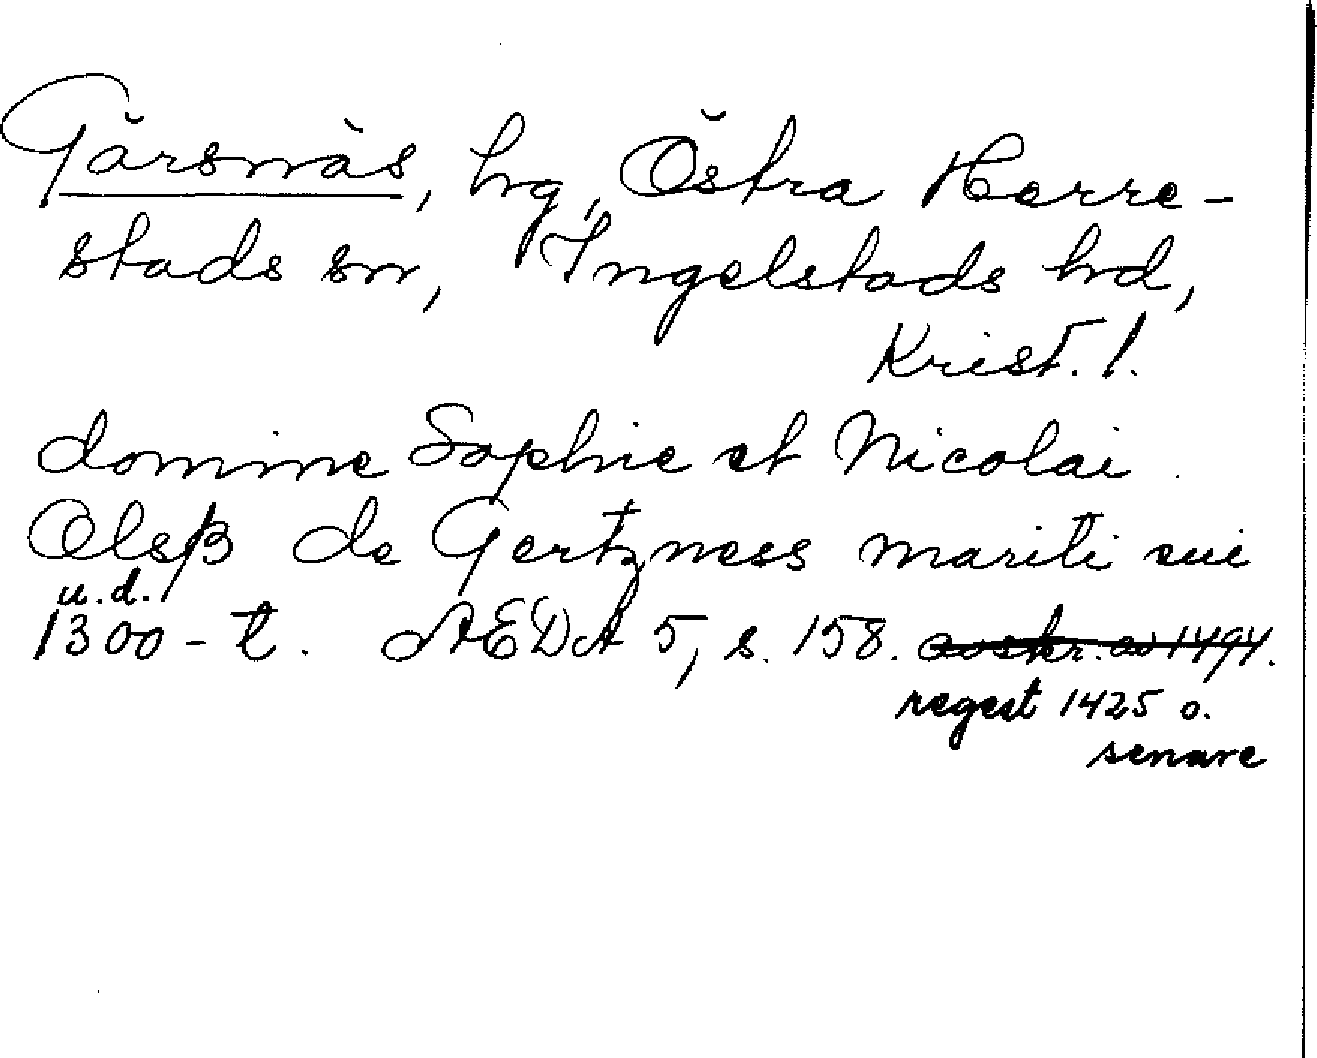 Gärsnäs, hg, Östra Herre-
stads sn, Ingelstads hd,
Krist. l.
domine Sophie et Nicolai
Olsß de Gertzness mariti sui
u.d.
1300-t. ÆDA 5, s. 158. avskr. av 1494.
regest 1425 o.
senare